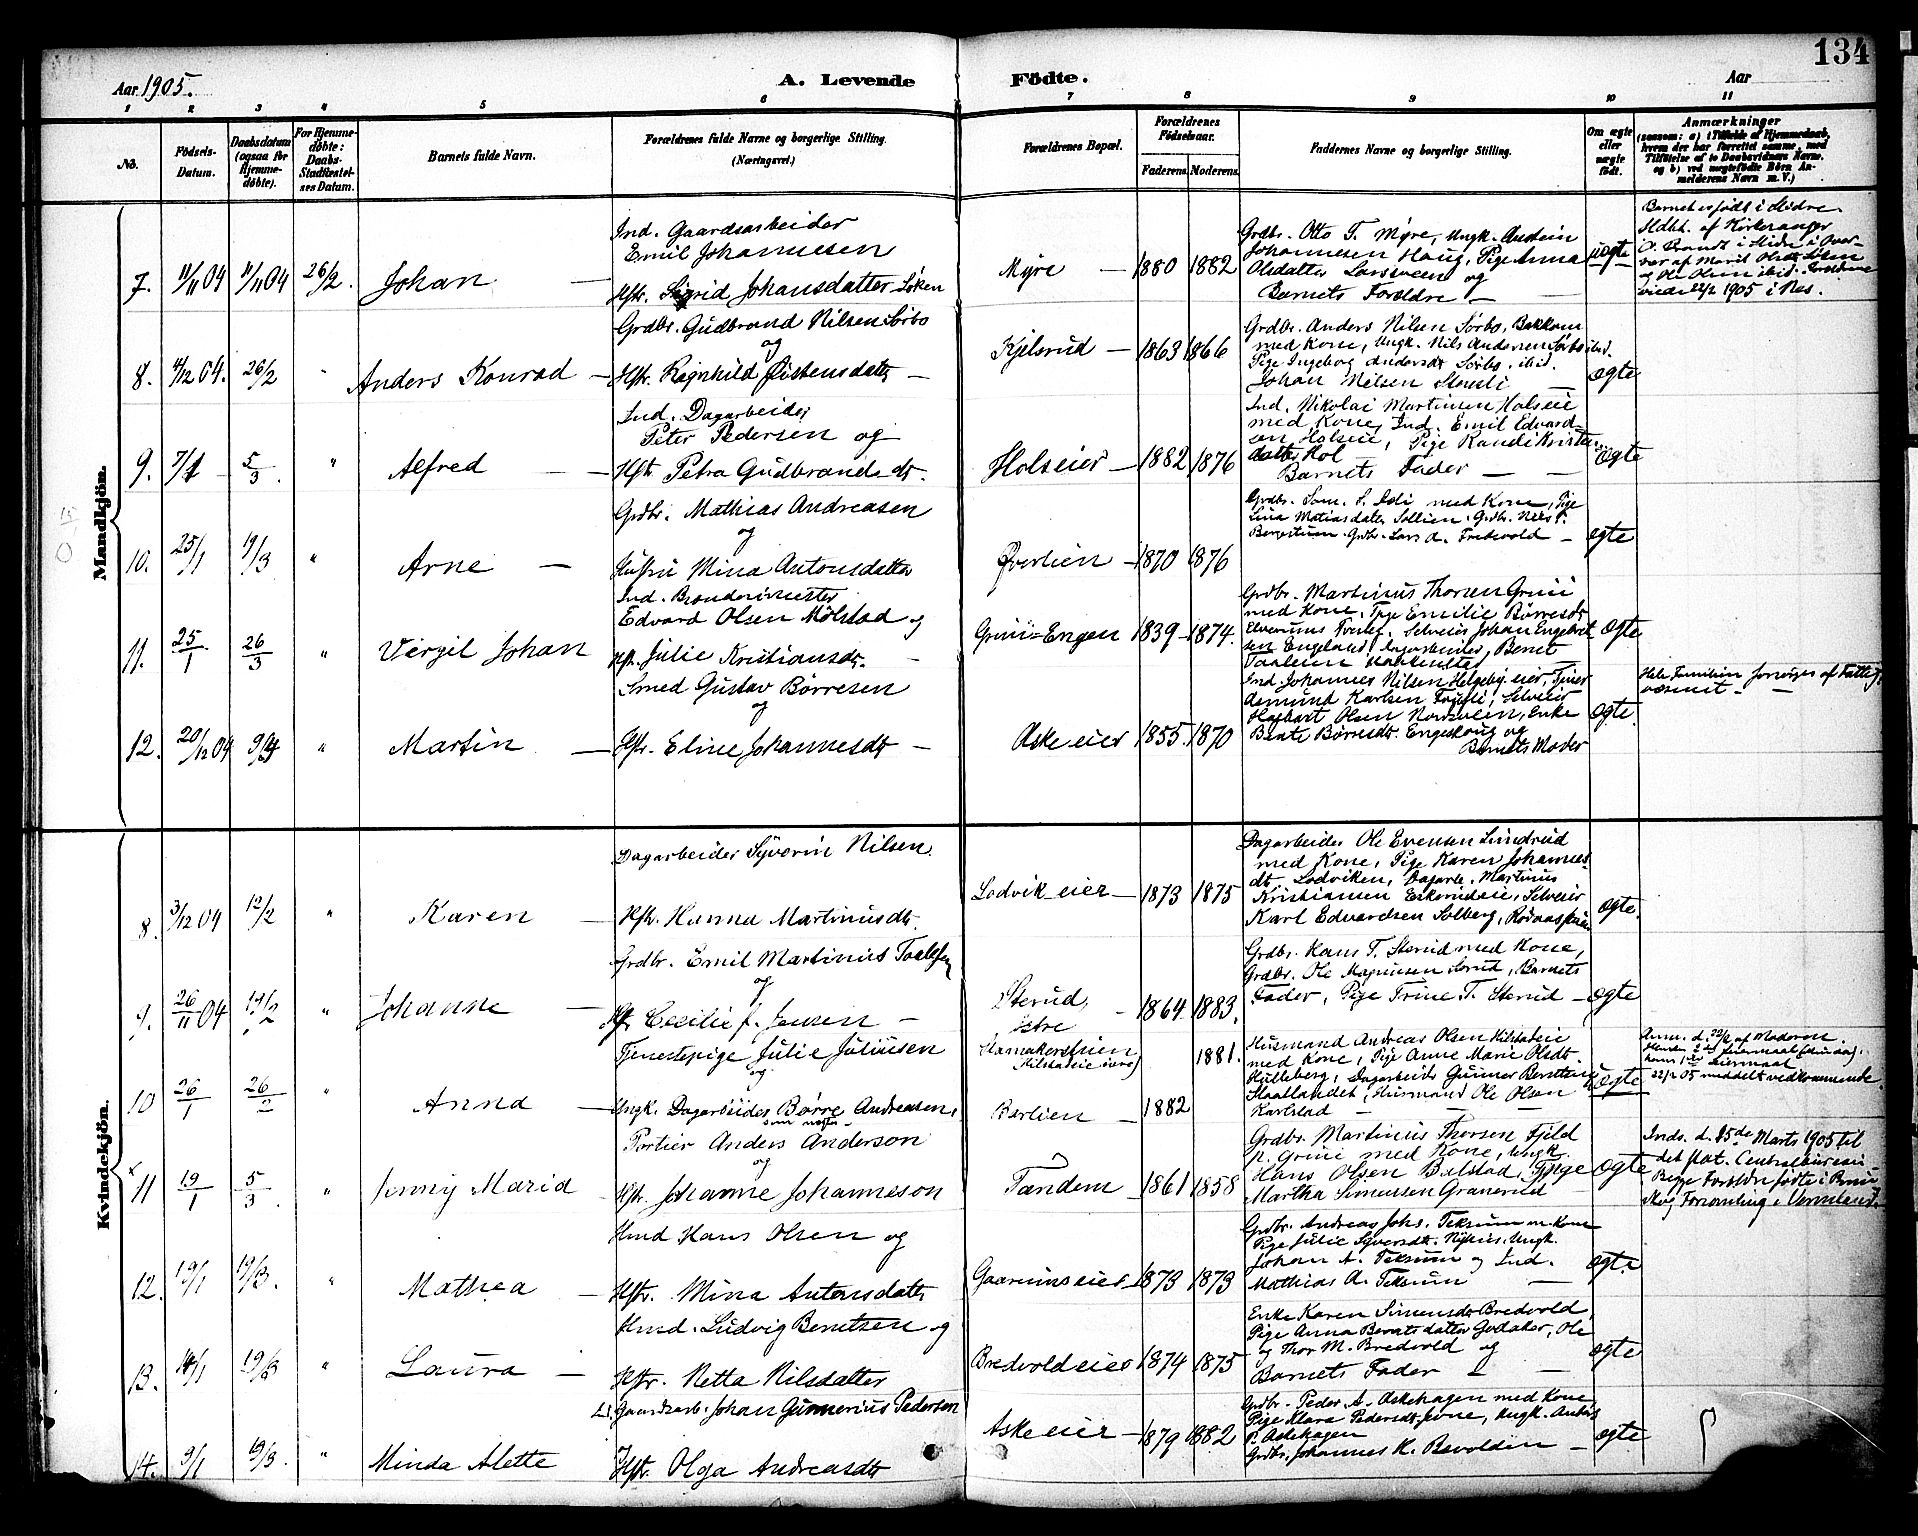 134
Aar 1905.
A. Levende
Födte.
Aar
1 2 3 4 5 6 7 8 9 10 11
No.
Födsels-
Datum.
Daabsdatum
(ogsaa for
Hjemme-
döbte).
For Hjemme-
döbte:
Daabs-
Stadfæstel-
ses Datum.
Barnets fulde Navn.
Forældrenes fulde Navne og borgerlige Stilling.
(Næringsvei.)
Forældrenes Bopæl.
Forældrenes
Födselsaar.
Faderens. Moderens.
Faddernes Navne og borgerlige Stilling.
Om ægte
eller
uægte
födt.
Anmærkninger
(saasom: a) i Tilfælde af Hjemmedaab,
hvem der har forrettet samme, med
Tilföielse af to Daabsvidners Navne,
og b) ved uægtefödte Börn An-
melderens Navn m. V.)
Mandkjön.
7. 11/11 04 11/11 04 26/2. Johan
Ind. Gaardsarbeider
Emil Johannesen
Hstr. Sigrid Johansdatter Løken
Myre 1880 1882
Grdbr. Otto T. Myre, Ungk. Anstein
Johannesen Haug, Pige Anna
Olsdatter Larssveen og
Barnets Forældre
uægte
Barnet er født i Hidre.
og Ole Olsen ibid. Forældrene
viede 22/2 1905 i Nes.
8. 4/12 04. 26/2 " Anders Konrad
Grdbr. Gudbrand Nilsen Sørbo
og
Hstr. Ragnhild Østensdatter
Kjelsrud 1863 1866
Grdbr. Anders Nilsen Sørbo, Bakkom
med Kone, Ungk. Nils Andersen Sørbo ibid.
Pige Ingeborg Andersdt Sørbo, ibid.
Johan Nilsen Stensli
ægte
9. 7/1 5/3. " Alfred
Ind. Dagarbeider
Peter Pedersen og
Hstr. Petra Gudbrandsdt.
Holseier 1882 1876
Ind. Nikolai Martinsen Holseie
med Kone, Ind. Emil Edvard-
sen Holseie, Pige Randi Kristians-
datter Hol
Barnets Fader
ægte
10. 25/1 19/3 " Arne
Grdbr. Mathias Andreasen
og
Hustru Mina Antonsdatter
Øverlien 1870 1876
Grdbr. Sam. S. Ledi med Kone, Pige
Lina Matiasdatter Sollien, Grdbr. Nils P.
Bergstuen, Grdbr. Lars A. Fredsvold
ægte
11. 25/1 26/3 " Virgil Johan
Ind. Brænderimester
Edvard Olsen Mølstad og
Hstr. Julie Kristiansdt.
Grini-Engen 1839 1874.
Grdbr. Martinus Thorsen Grini
med Kone, Pige Emilie Børresdt
Elverums Tverlei, Selveier Johan Engebret
sen Engeland, Dagarbeider Bernt
ægte
12. 20/12 04 9/4 " Martin
Smed Gustav Børresen
og
Hstr. Eline Johannesdt
Aske eier 1855. 1870
Ind. Johannes Nilsen Helgebyeier, Tjener
Asmund Karlsen Fossli, Selveier
Hagbart Olsen Nordsveen, Enke
Bente Børresdt. Engeskoug og
Barnets Moder
ægte.
Hele Familien forsørges af Fattig-
væsenet.
Kvindekjön.
8. 3/12 04 12/2 " Karen
Dagarbeider Syverin Nilsen.
Hstr. Hanna Martinusdt.
Lodvik eier 1873 1875
Dagarbeider Ole Evensen Lundrud
med Kone, Pige Karen Johannes-
dt. Lodviken, Dagarb. Martinus
Kristiansen Eskerudeie, Selveier
Karl Edvardsen Solberg,
ægte.
9. 26/11 04 19/2 " Johanne
Grdbr. Emil Martinius Taalesen
og
Hstr. Cecilie J. Jensen
Sterud,
østre
1864. 1883.
Grdbr. Hans T. Sterud med Kone,
Grdbr. Ole Magnusen Sorud, Barnets
Fader, Pige Trine T. Sterud
ægte
10 26/1 26/2 " Anna
Tjenestepige Julie Juliusen
og
Ungk. Dagarbeider Børre Andreasen,
som næste
1881.
Berlien 1882
Husmand Andreas Olsen Kilstadeie
med Kone, Pige Anne Marie Olsdt.
Hulleberg, Dagarbeider Gunner Berntsen
Haallandet, Husmand Ole Olsen
Karlstad
uægte
Anm. d. 22/2 af Moderen.
22/2 05 meddelt vedkommende
x 11 19/1 5/3. " Jenny Maria
Portier Anders Anderson
og
Hstr. Johanne Johanneson
Tandem 1861 1858
Grdbr. Martinus Thorsen Fjeld
p. Grini med Kone, Ungk.
Hans Olsen Balstad, Tjpige
Martha Simensen Granerud
ægte
Inds. d. 25de Marts 1905 til
det stat. Centralbureau
Begge Forældre fødte i Brun-
skog Forsamling i Vermland.
12. 19/1 19/3. " Mathea
Hmd Hans Olsen og
Hstr. Mina Antonsdatter
Gaarumseier 1873 1873
Grdbr. Andreas Johs. Teksum m. Kone
Pige Julie Syversdt. Nyhus, Ungk.
Johan A. Teksum og Ind.
Mathias A. Teksum
ægte
13. 14/1 19/3 " Laura
Hmd. Ludvig Berntsen og
Hstr. Netta Nilsdatter
Bredvoldeier 1874 1875
Enke Karen Simensdt Bredvold,
Pige Anna Berntsdatter Godaker, Ole
og Thor M. Bredvold og
Barnets Fader
ægte
14. 9/1 19/3. " Minda Alette
Gaardsarb. Johan Gunnerius Pederson
Hstr. Olga Andreasdt
Askeeier 1879 1882
Grdbr. Peder A. Askehagen med Kone
Pige Klara Pedersdt ibid, Ungk. Anton
P. Askehagen
Grdbr. Johannes K. Bevolden
ægte